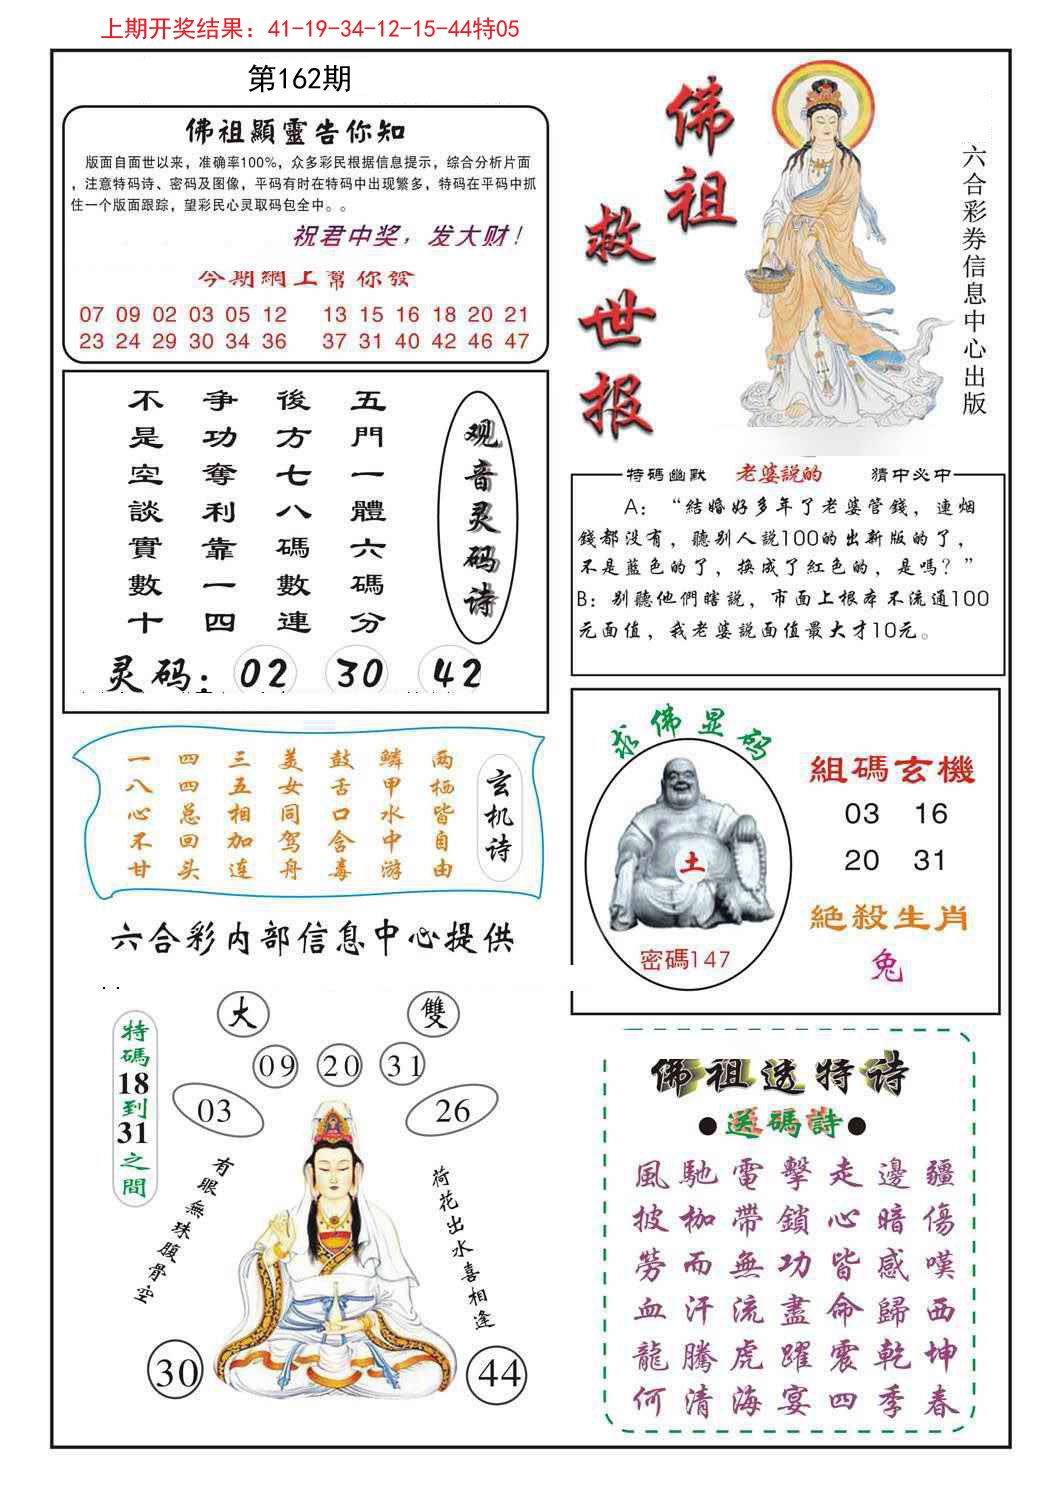 上期开奖结果：41-19-34-12-15-44特05
第162期
佛祖顯靈告你知
版面自面世以来，准确率100%，众多彩民根据信息提示，综合分析片面
，注意特码诗、密码及图像，平码有时在特码中出现繁多，特码在平码中抓
住一个版面跟踪，望彩民心灵取码包全中。。
祝君中奖，发大财！
今期網上幫你發
07 09 02 03 05 12 13 15 16 18 20 21
23 24 29 30 34 36 37 31 40 42 46 47
佛祖
救世报
六合彩券信息中心出版
观音灵码诗
五門一體六碼分
後方七八碼數連
争功奪利靠一四
不是空談實數十
灵码：02 30 42
特碼幽默 老婆説的 猜中必中
A：“結婚好多年了老婆管錢，連烟
錢都没有，聽别人説100的出新版的了，
不是藍色的了，换成了紅色的，是嗎？”
B：别聽他們瞎説，市面上根本不流通100
元面值，我老婆説面值最大才10元。
玄机诗
两栖皆自由
鳞甲水中游
鼓舌口含毒
美女同驾舟
三五相加连
四四总回头
一八心不甘
六合彩内部信息中心提供
求佛显码
土
密碼147
組碼玄機
03 16
20 31
絶殺生肖
兔
大 雙
特碼18到31之間
09 20 31
03 26
有眼無珠腹骨空
荷花出水喜相逢
30 44
佛祖透特诗
●送碼詩●
風馳電擊走邊疆
披枷帶鎖心暗傷
勞而無功皆感嘆
血汗流盡命歸西
龍騰虎躍震乾坤
何清海宴四季春